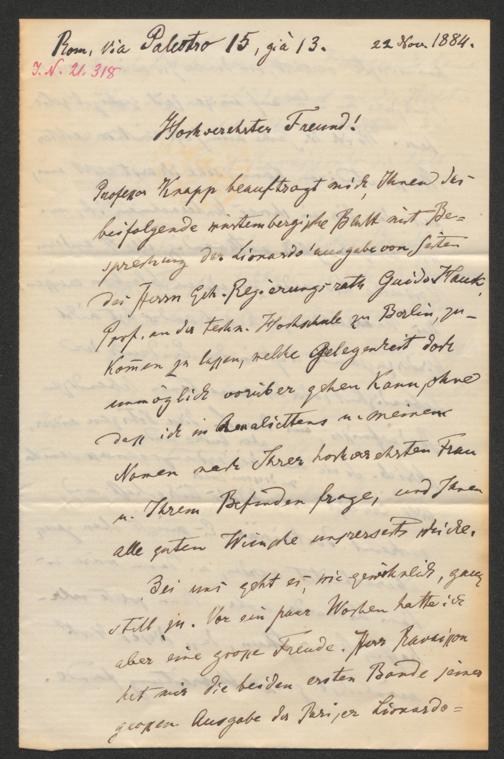 Rom, Via Palestro 15, già 13. 22 Nov. 1884.
I.N. 21.318
Hochverehrter Freund!
Professor Knapp beauftragt mich, Ihnen das
beifolgende würtembergische Blatt mit Be-
sprechung der Lionardo'ausgabe von Seiten
des Herrn Geh. Regierungsraths Guido Hauck,
Prof. an der techn. Hochschule zu Berlin, zu-
kommen zu lassen, welche Gelegenheit doch
unmöglich vorüber gehen kann, ohne
dass ich in u. meinem
Namen nach Ihrer hochverehrten Frau
u. Ihrem Befinden frage, und Ihnen
alle guten Wünsche unsrerseits schicke.
Bei uns geht es, wie gewöhnlich, ganz
still zu. Vor ein paar Wochen hatte ich
aber eine grosse Freude. Herr Ravaisson
hat mir die beiden ersten Bände seiner
grossen Ausgabe der Pariser Lionardo=